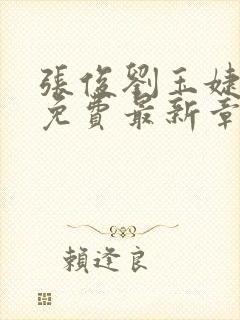 張俊劉玉婕
免費最新章
賴逢良